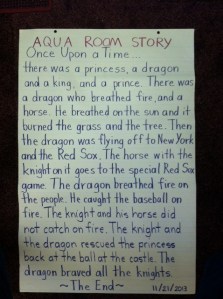 AQUA ROOM STORY
Once Upon a Time....
there was a princess, a dragon
and a king, and a prince. There
was a dragon who breathed fire, and a
horse. He breathed on the sun and it
burned the grass and the tree. Then
the dragon was flying off to New York
and the Red Sox. The horse with the
knight on it goes to the special Red Sox
game. The dragon breathed fire on
the people. He caught the baseball on
fire. The knight and his horse did
not catch on fire. The knight and
the dragon rescued the princess
back at the ball at the castle. The
dragon braved all the knights.
~The End~ 11/21/2013